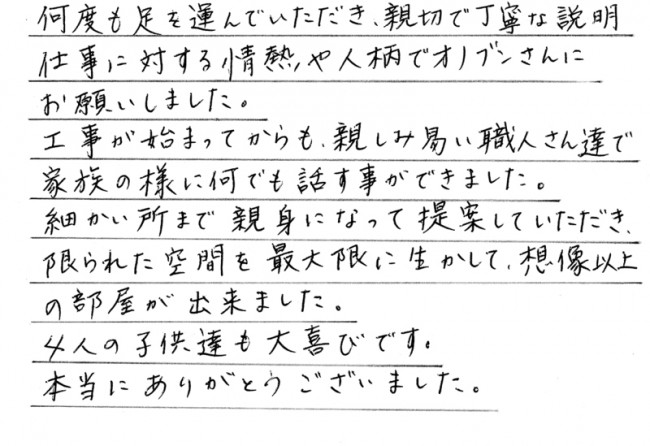 何度も足を運んでいただき、親切で丁寧な説明
仕事に対する情熱や人柄でオノブンさんに
お願いしました。
工事が始まってからも、親しみ易い職人さん達で
家族の様に何でも話す事ができました。
細かい所まで親身になって提案していただき、
限られた空間を最大限に生かして、想像以上
の部屋が出来ました。
4人の子供達も大喜びです。
本当にありがとうございました。